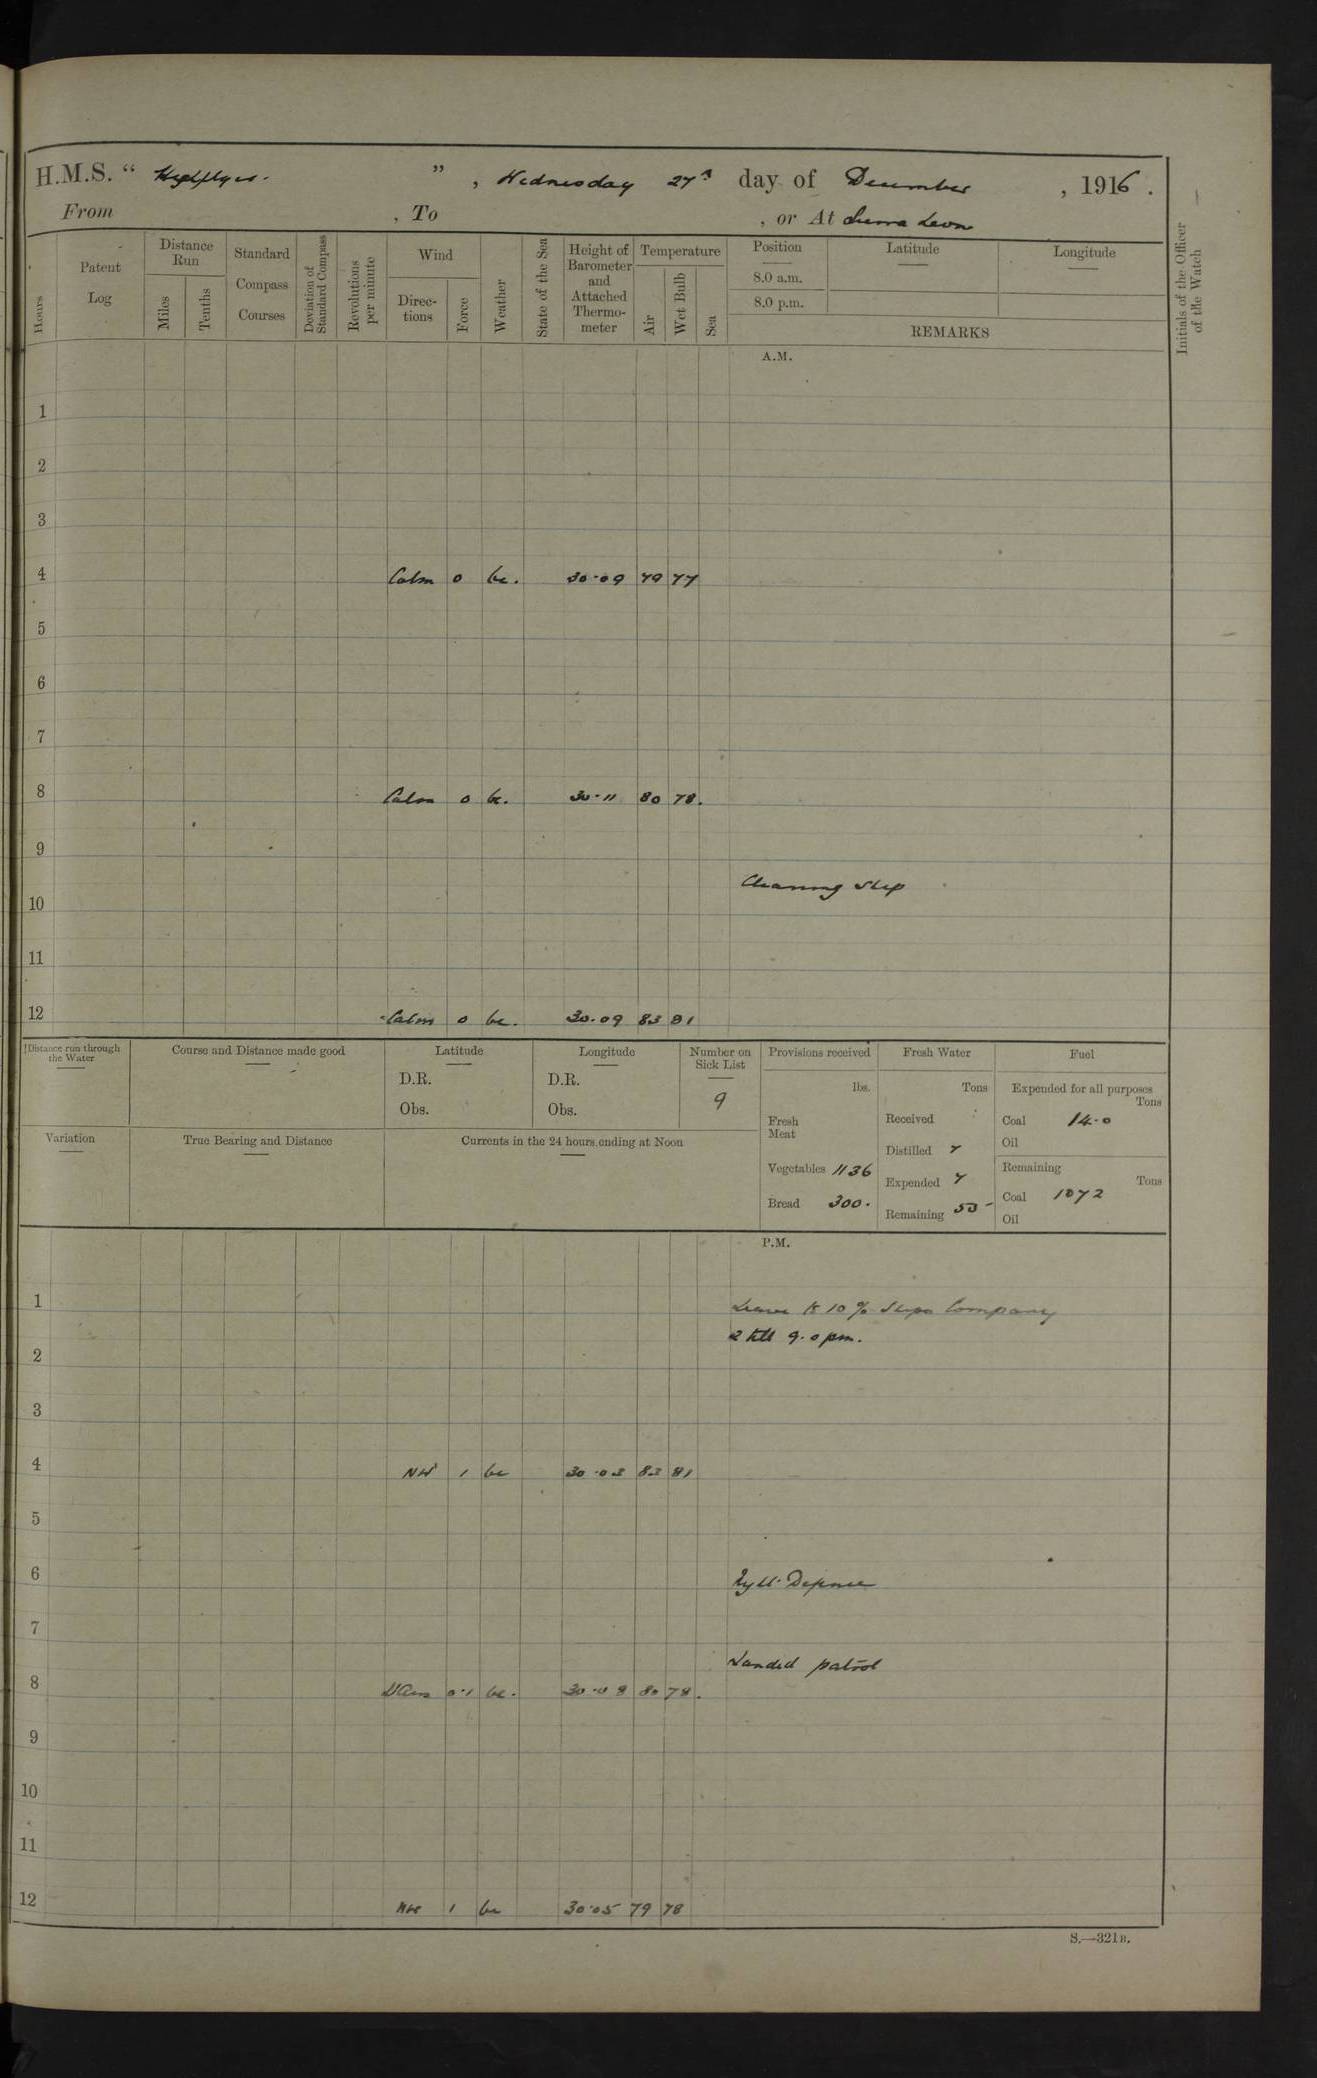 H.M.S. “ Highflyer. ” , Wednesday 27th day of December , 1916 .
From , To , or At Sierra Leone
Hours
Patent Log
Distance Run
Miles
Tenths
Standard Compass Courses
Deviation of Standard Compass
Revolutions per minute
Wind
Directions
Force
Weather
State of the Sea
Height of Barometer and Attached Thermometer
Temperature
Air
Wet Bulb
Sea
Position
8.0 a.m.
8.0 p.m.
Latitude
Longitude
REMARKS
Initials of the Officer of the Watch
A.M.
1
2
3
4 Calm 0 bc. 30.09 79 77
5
6
7
8 Calm 0 bc. 30.11 80 78.
9
Cleaning Ship
10
11
12 Calm 0 bc. 30.09 83 81
Distance run through the Water
Course and Distance made good
Latitude
D.R.
Obs.
Longitude
D.R.
Obs.
Number on Sick List
9
Variation
True Bearing and Distance
Currents in the 24 hours ending at Noon
Provisions received
lbs.
Fresh Meat
Vegetables 1136
Bread 300.
Fresh Water
Tons
Received
Distilled 7
Expended 7
Remaining 53
Fuel
Expended for all purposes
Tons
Coal 14.0
Oil
Remaining
Tons
Coal 1072
Oil
P.M.
1 Leave to 10% Ships Company
2 till 9.0 pm.
2
3
4 NW 1 bc 30.03 83 81
5
6
7
Landed patrol
8 0.1 bc. 30.08 80 78.
9
10
11
12 NW 1 bc 30.05 79 78
S.—321B.